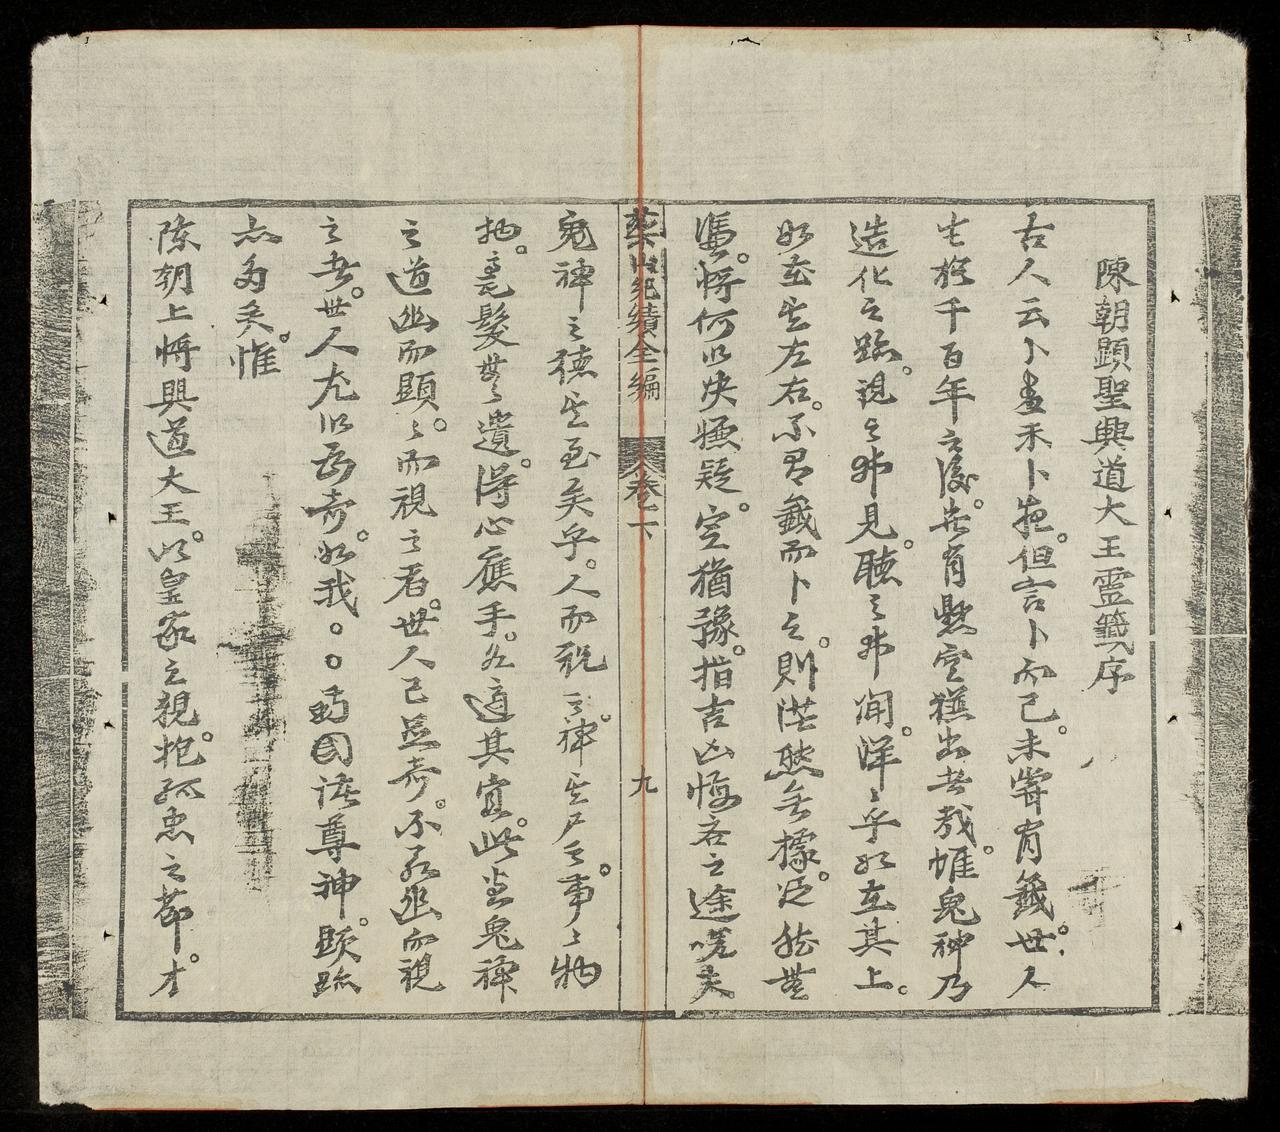 陳朝顕聖興道大王靈籤序
古人云卜晝未卜夜。但言卜而已。未嘗有籤。世人
生於千百年之後。豈有懸空摸出者哉。惟鬼神乃
造化之跡。視之弗見。聽之弗聞。洋〻乎如在其上。
如在其左右。不有籤而卜之。則茫然無據。泛然無
憑。將何以決狐疑。定猶豫。指吉凶悔吝之途嗟夫
藥山紀績全編 卷下 九
鬼神之德其至矣乎。人而祝之。神其尸之。事〻物
物。毫髮無遺。得心應手。各適其宜。此豈鬼神
之道幽而顕。〻而視之者。世人已為奇。不知幽而視
之者。世人尤以為奇。如我。。國諸尊神。顕跡
亦多矣。惟
陳朝上將興道大王。以皇家之親。抱孤忠之節。才